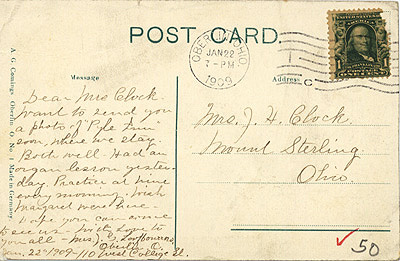 POST CARD.
OBERLIN, OHIO.
JAN 22
7 - PM
1909
Message
Address
C
A. G. Comings, Oberlin, O. No. 1 Made in Germany
Dear Mrs Clock
Want to send you
a photo of "Pyle Inn"
soon, where we stay.
Both well. Had an
organ lesson yester-
day. Practice at nine
every morning. Wish
Margaret were here.
Hope you can come
to see us. With love to
you all - Mrs. J.
Oberlin O.
Jan. 22-1909-110 West College St.
Mrs. J. H. Clock.
Mount Sterling.
Ohio.
50